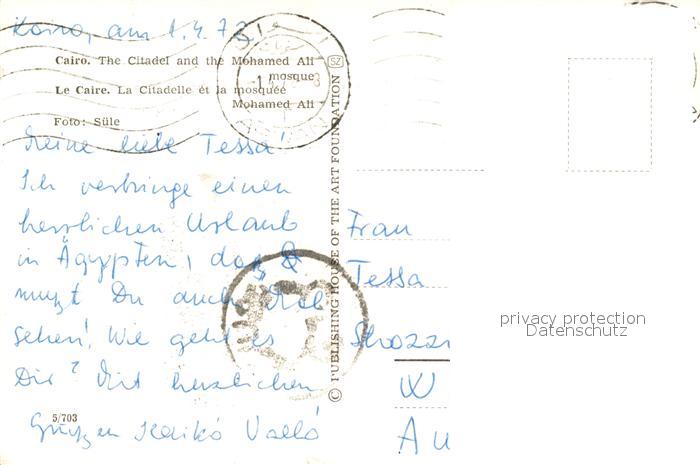 Kairo, am 1.4.73
Cairo. The Citadel and the Mohamed Ali
mosque
Le Caire. La Citadelle et la mosquée
Mohamed Ali
Foto: Süle
Meine liebe Tessa!
Ich verbringe einen
herrlichen Urlaub
in Ägypten, das
mußt Du auch Mal
sehen! Wie geht es
Dir? Mit herzlichen
Grüßen Ildikó
5/703
© PUBLISHING HOUSE OF THE ART FOUNDATION
SZ
Frau
Tessa
Strozzi
W
Au
privacy protection
Datenschutz